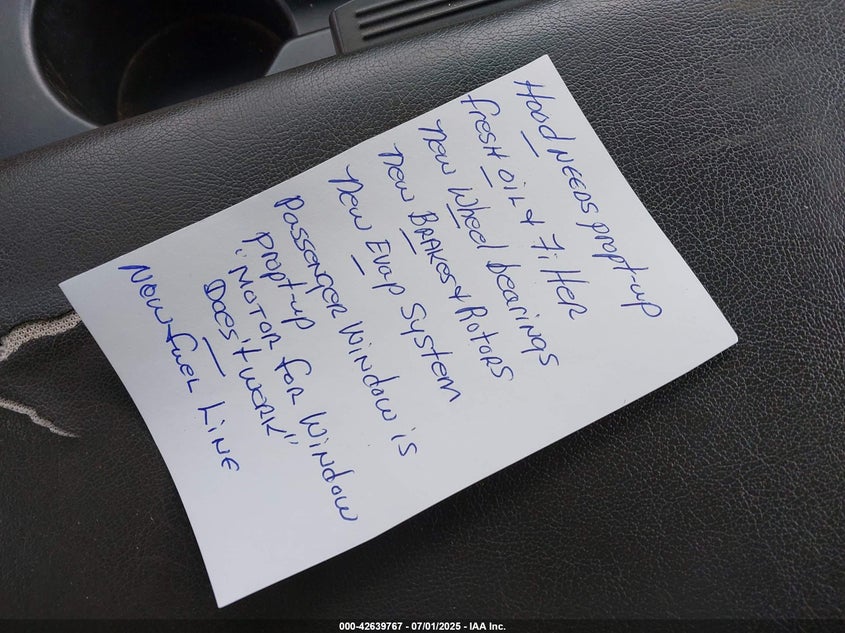 Hood NEEDS propt-up
fresh oil & Filter
new wheel bearings
new BRAKES & Rotors
New Evap System
passenger window is
propt-up
"MOTOR for window
Does't work"
New fuel Line
000-42639767 - 07/01/2025 - IAA Inc.